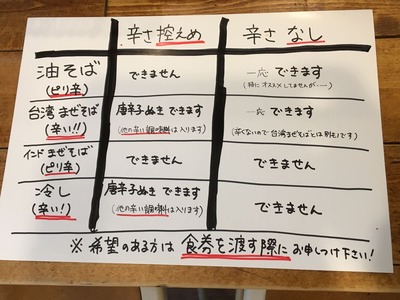 辛さ控えめ 辛さ なし
油そば できません 一応 できます
(ピリ辛) (特にオススメしてませんが……)
台湾まぜそば 唐辛子ぬき できます 一応 できます
(辛い!!) (他の辛い調味料は入ります) (辛くないので台湾まぜそばとは別モノです)
インドまぜそば できません できません
(ピリ辛)
冷し 唐辛子ぬき できます できません
(辛い!) (他の辛い調味料は入ります)
※ 希望のある方は 食券を渡す際に お申しつけ下さい!